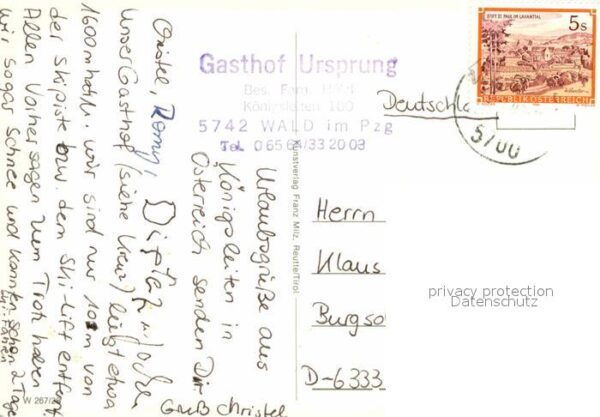 STIFT ST. PAUL IM LAVANTTAL
5s
REPUBLIK ÖSTERREICH
Gasthof Ursprung
Bes. Fam.
Königsleiten 100
5742 WALD im Pzg
Tel. 0 65 64/33 20 03
Deutschla
5700
Urlaubsgrüße aus
Königsleiten in
Österreich senden Dir
Christel, Romy,
Unser Gasthof (siehe Kreuz) liegt etwa
1600m hoch. wir sind nur 10m von
der Skipiste bzw. dem Ski-Lift entfernt.
Allen Vorhersagen zum Trotz haben
wir sogar Schnee und konnten schon 2 Tage
Ski-Fahren
Gruß Christel
Kunstverlag Franz Milz, Reutte/Tirol
W 267/2
Herrn
Klaus
Burgso
D-6333
privacy protection
Datenschutz